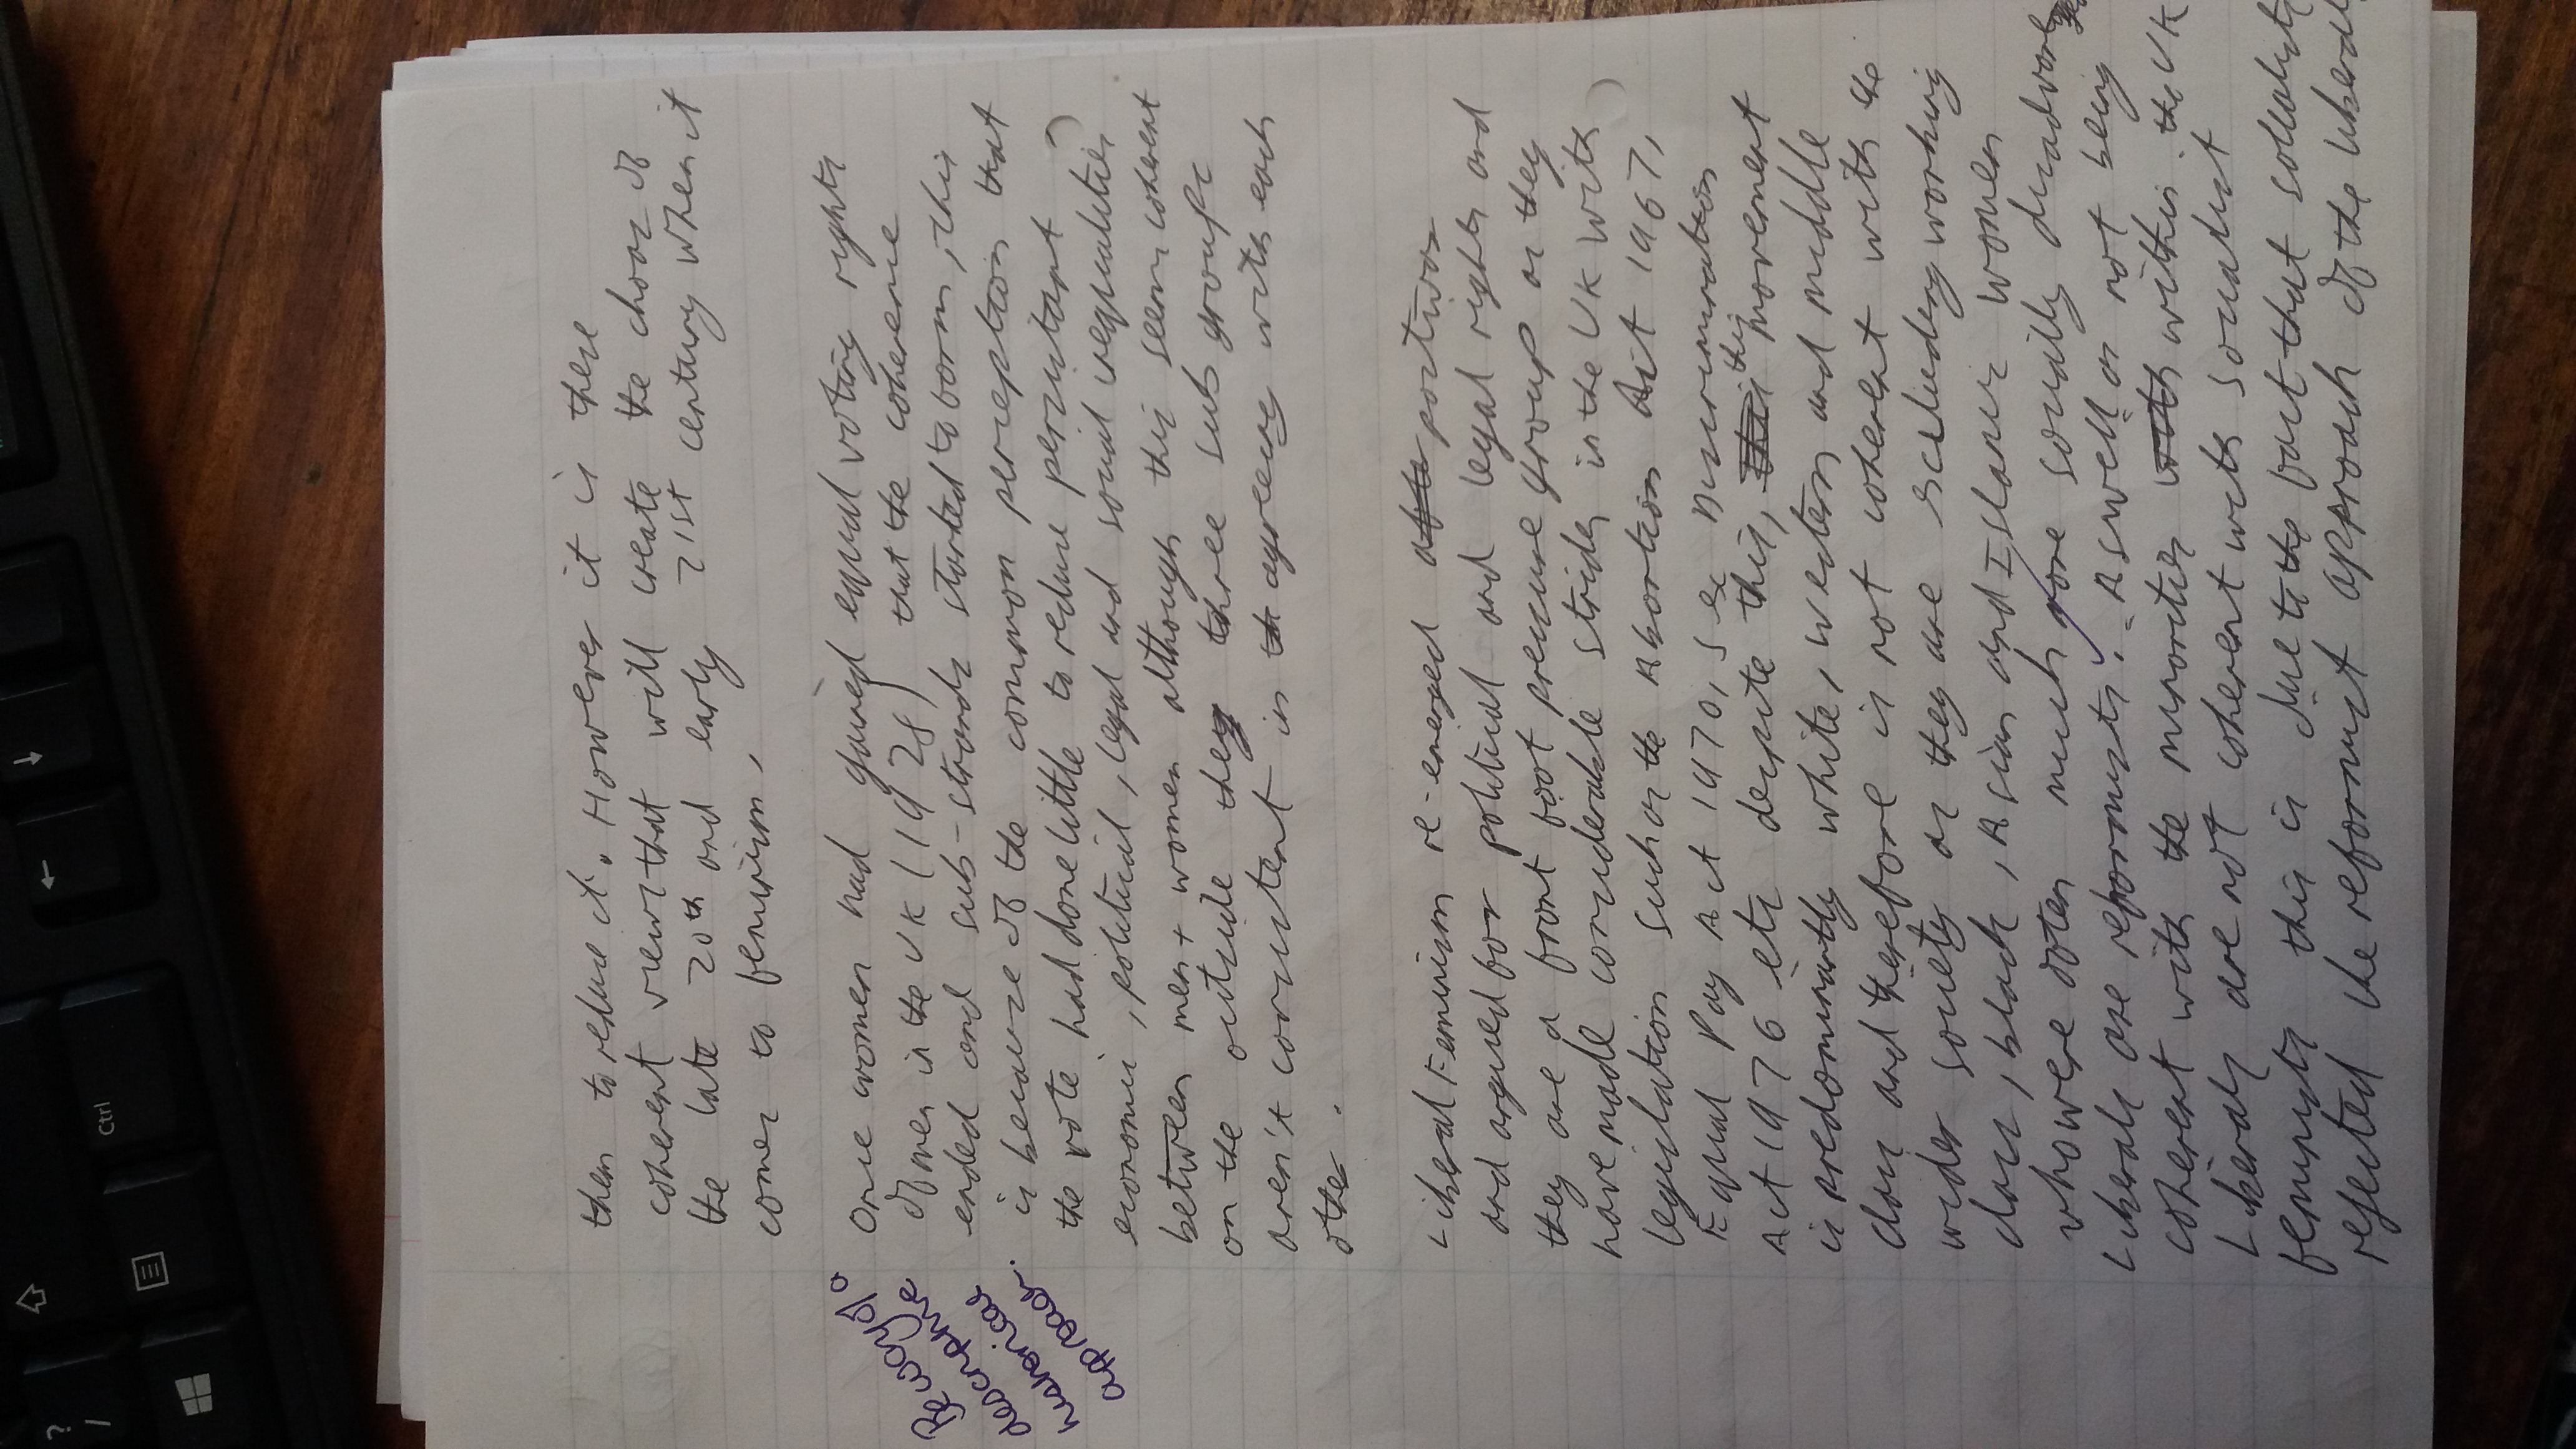 then to reduce it. However it is these
coherent views that will create the chaos of
the late 20th and early 21st century when it
comes to feminism,
once women had gained equal voting rights
of men in the UK (1928) that the coherence
ended and sub-strands started to form, this
is because of the common perception that
the vote had done little to reduce persistant
economic, political, legal and social inequalities
between men + women although this seem coherent
on the outside they three sub groups
aren't consistent in agreeing with each
other.
Beware of
descriptive
historical
approach.
Liberal Feminism re-emerged positions
and argued for political and legal rights and
they are a front foot pressure group as they
have made considerable strides in the UK with
legislation such as the Abortion Act 1967,
Equal Pay Act 1970, Sex Discrimination
Act 1976 etc despite this, this movement
is predominantly white, western and middle
class and therefore is not coherent with the
wider society as they are secluding working
class, black, Asian and Islamic women
who were often much more socially
Liberals are reformists. Aswell as not being
coherent with the minorities within the UK
Liberals are not coherent with socialist
feminists this is due to the fact that socialists
rejected the reformist approach of the liberals
Ctrl
?
/